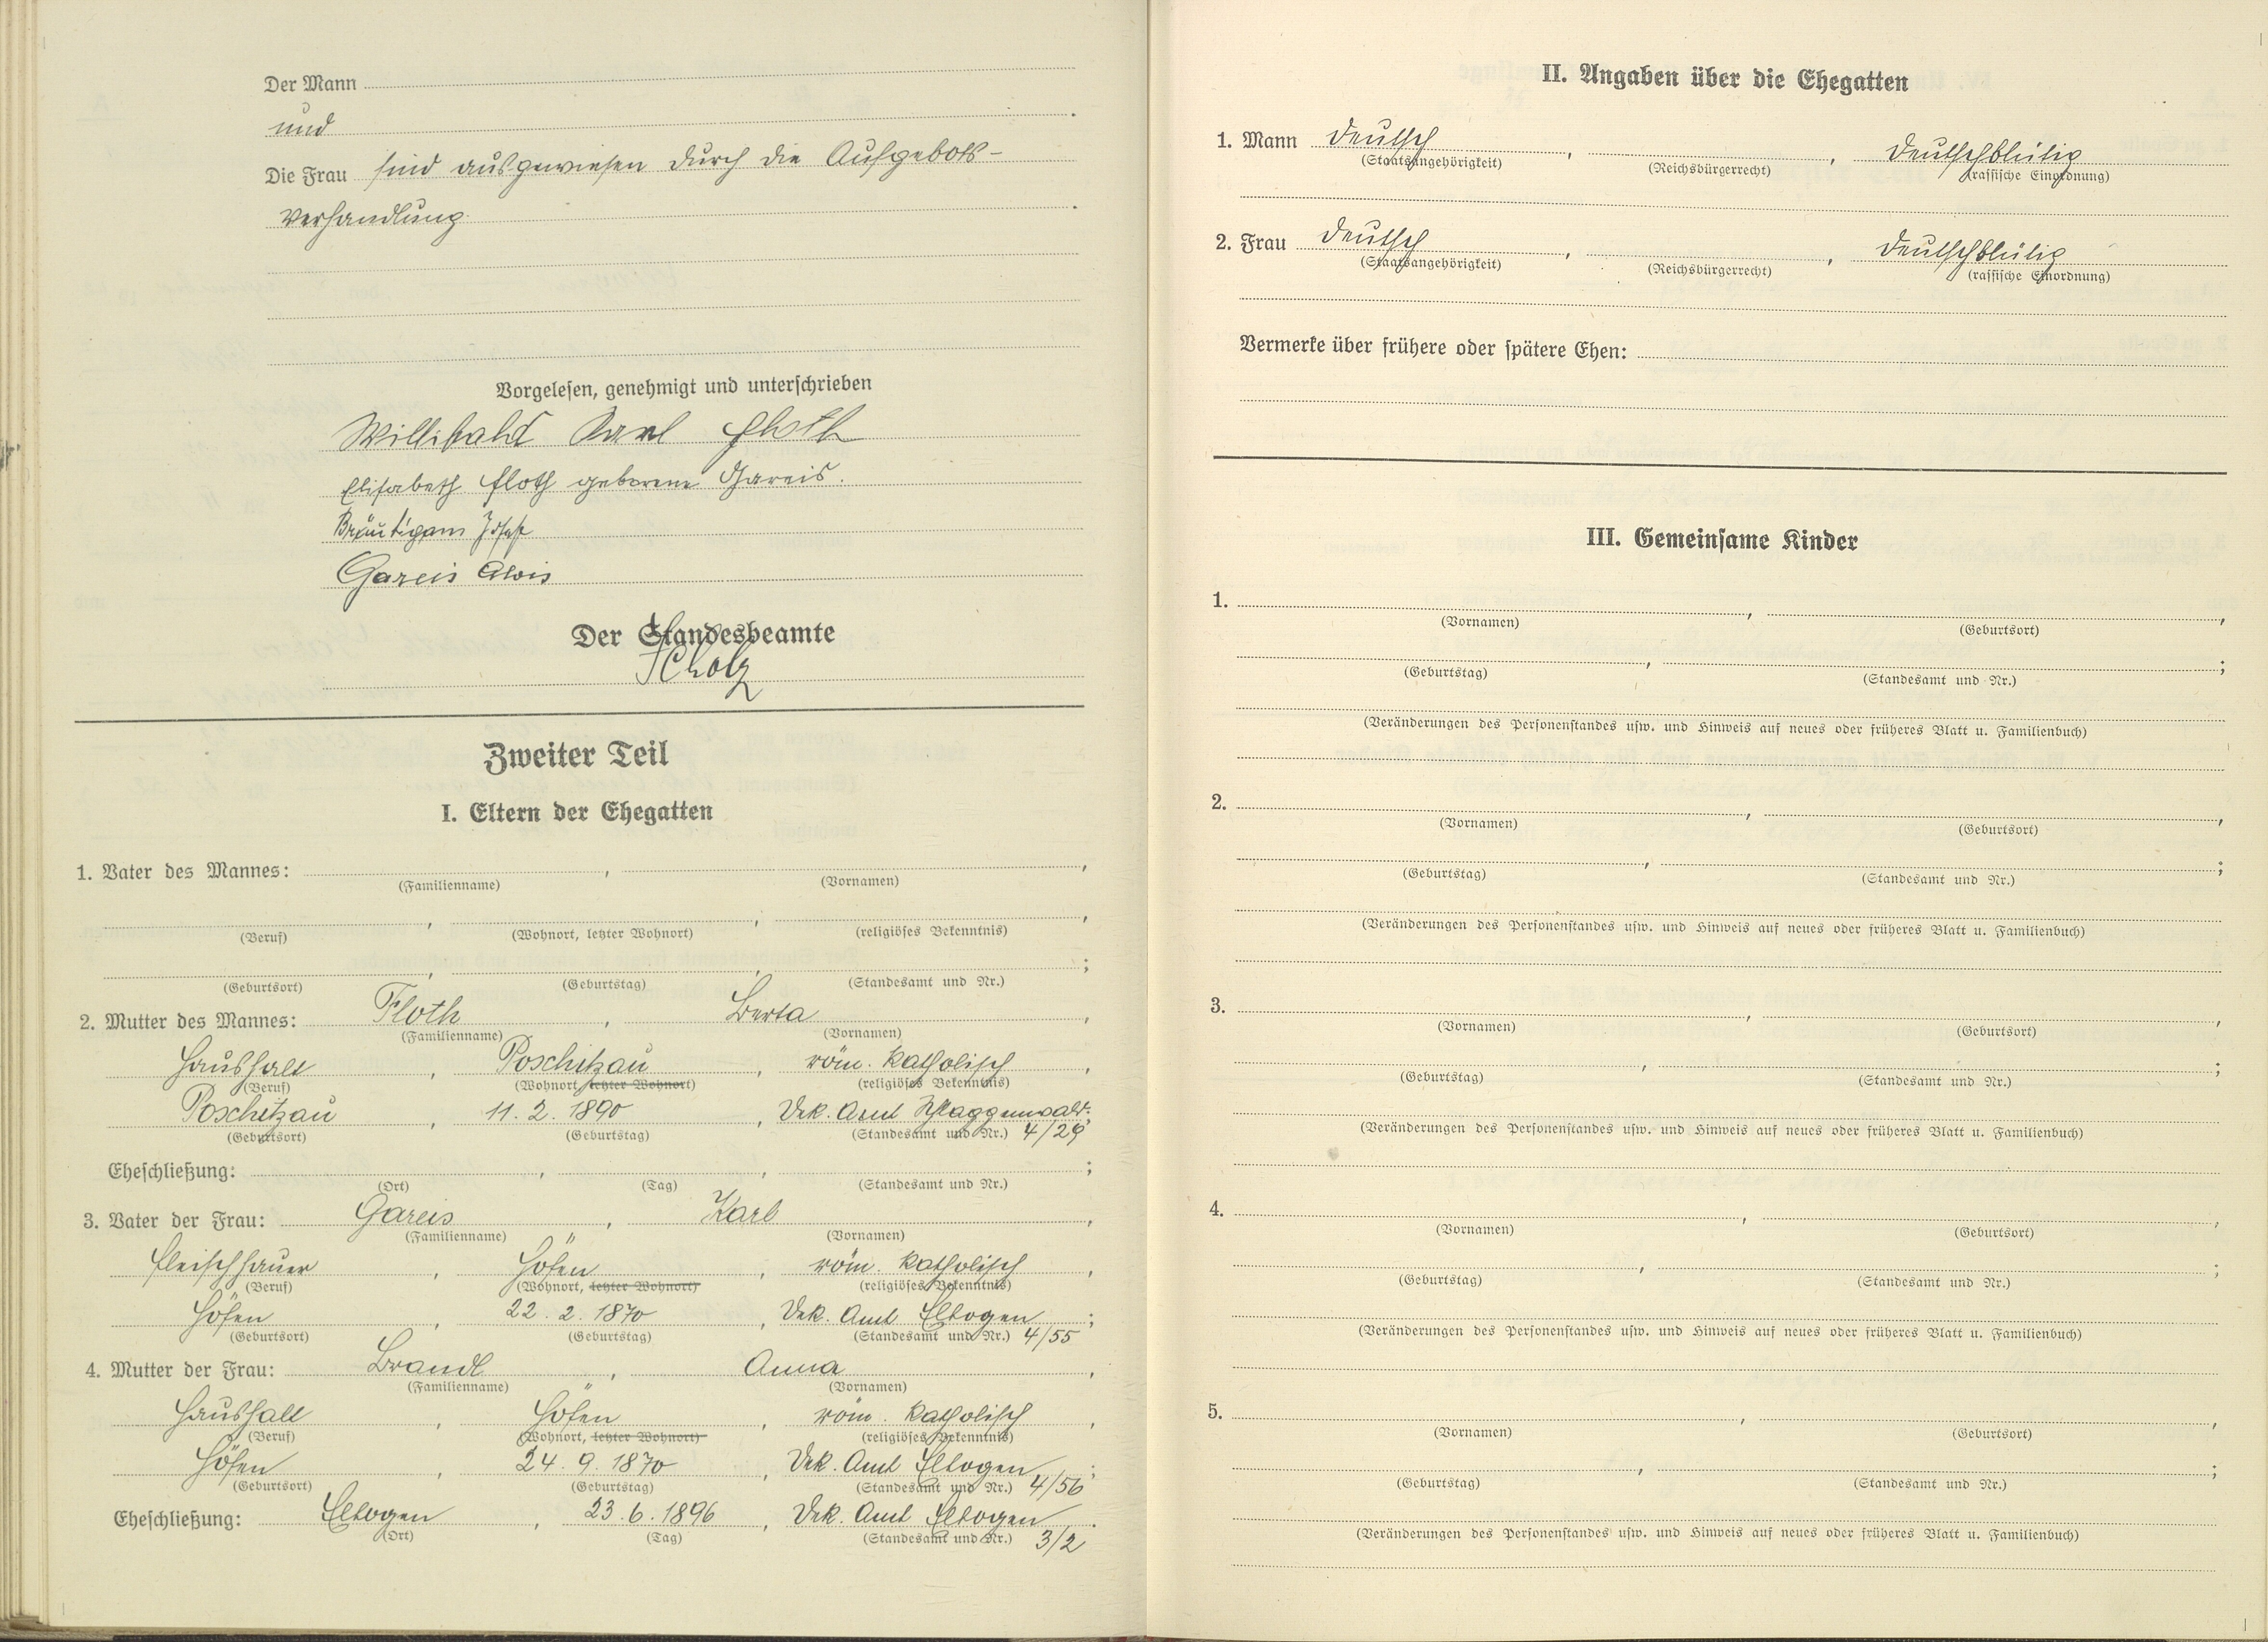 Der Mann
und
Die Frau sind ausgewiesen durch die Aufgebots-
verhandlung.
Vorgelesen, genehmigt und unterschrieben
Willibald Karl Floth
Elisabeth Floth geborene Gareis.
Bräutigam Josef
Gareis Alois
Der Standesbeamte
Scholz
Zweiter Teil
I. Eltern der Ehegatten
1. Vater des Mannes: , ,
(Familienname) (Vornamen)
, , ,
(Beruf) (Wohnort, letzter Wohnort) (religiöses Bekenntnis)
, , ;
(Geburtsort) (Geburtstag) (Standesamt und Nr.)
2. Mutter des Mannes: Floth , Berta ,
(Familienname) (Vornamen)
Haushalt , Poschitzau , röm. katholisch ,
(Beruf) (Wohnort, letzter Wohnort) (religiöses Bekenntnis)
Poschitzau , 11. 2. 1890 , Dek. Amt Schlaggenwald.
(Geburtsort) (Geburtstag) (Standesamt und Nr.) 4/29
Eheschließung: , , ;
(Ort) (Tag) (Standesamt und Nr.)
3. Vater der Frau: Gareis , Karl ,
(Familienname) (Vornamen)
Fleischhauer , Höfen , röm. katholisch ,
(Beruf) (Wohnort, letzter Wohnort) (religiöses Bekenntnis)
Höfen , 22. 2. 1870 , Dek. Amt Elbogen ;
(Geburtsort) (Geburtstag) (Standesamt und Nr.) 4/55
4. Mutter der Frau: Brandl , Anna ,
(Familienname) (Vornamen)
Haushalt , Höfen , röm. katholisch ,
(Beruf) (Wohnort, letzter Wohnort) (religiöses Bekenntnis)
Höfen , 24. 9. 1870 , Dek. Amt Elbogen ;
(Geburtsort) (Geburtstag) (Standesamt und Nr.) 4/56
Eheschließung: Elbogen , 23. 6. 1896 , Dek. Amt Elbogen .
(Ort) (Tag) (Standesamt und Nr.) 3/2
II. Angaben über die Ehegatten
1. Mann deutsch , , deutschblütig
(Staatsangehörigkeit) (Reichsbürgerrecht) (rassische Einordnung)
2. Frau deutsch , , deutschblütig
(Staatsangehörigkeit) (Reichsbürgerrecht) (rassische Einordnung)
Vermerke über frühere oder spätere Ehen:
III. Gemeinsame Kinder
1. , ,
(Vornamen) (Geburtsort)
, ;
(Geburtstag) (Standesamt und Nr.)
(Veränderungen des Personenstandes usw. und Hinweis auf neues oder früheres Blatt u. Familienbuch)
2. , ,
(Vornamen) (Geburtsort)
, ;
(Geburtstag) (Standesamt und Nr.)
(Veränderungen des Personenstandes usw. und Hinweis auf neues oder früheres Blatt u. Familienbuch)
3. , ,
(Vornamen) (Geburtsort)
, ;
(Geburtstag) (Standesamt und Nr.)
(Veränderungen des Personenstandes usw. und Hinweis auf neues oder früheres Blatt u. Familienbuch)
4. , ,
(Vornamen) (Geburtsort)
, ;
(Geburtstag) (Standesamt und Nr.)
(Veränderungen des Personenstandes usw. und Hinweis auf neues oder früheres Blatt u. Familienbuch)
5. , ,
(Vornamen) (Geburtsort)
, ;
(Geburtstag) (Standesamt und Nr.)
(Veränderungen des Personenstandes usw. und Hinweis auf neues oder früheres Blatt u. Familienbuch)